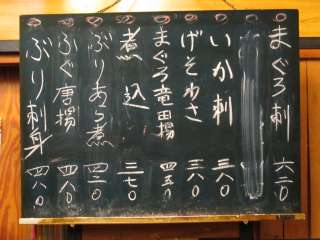 まぐろ刺 六二〇
いか刺 三八〇
げそわさ 三八〇
まぐろ竜田揚 四五〇
煮込 三七〇
ぶりあら煮 四二〇
ふぐ唐揚 四八〇
ぶり刺身 四八〇